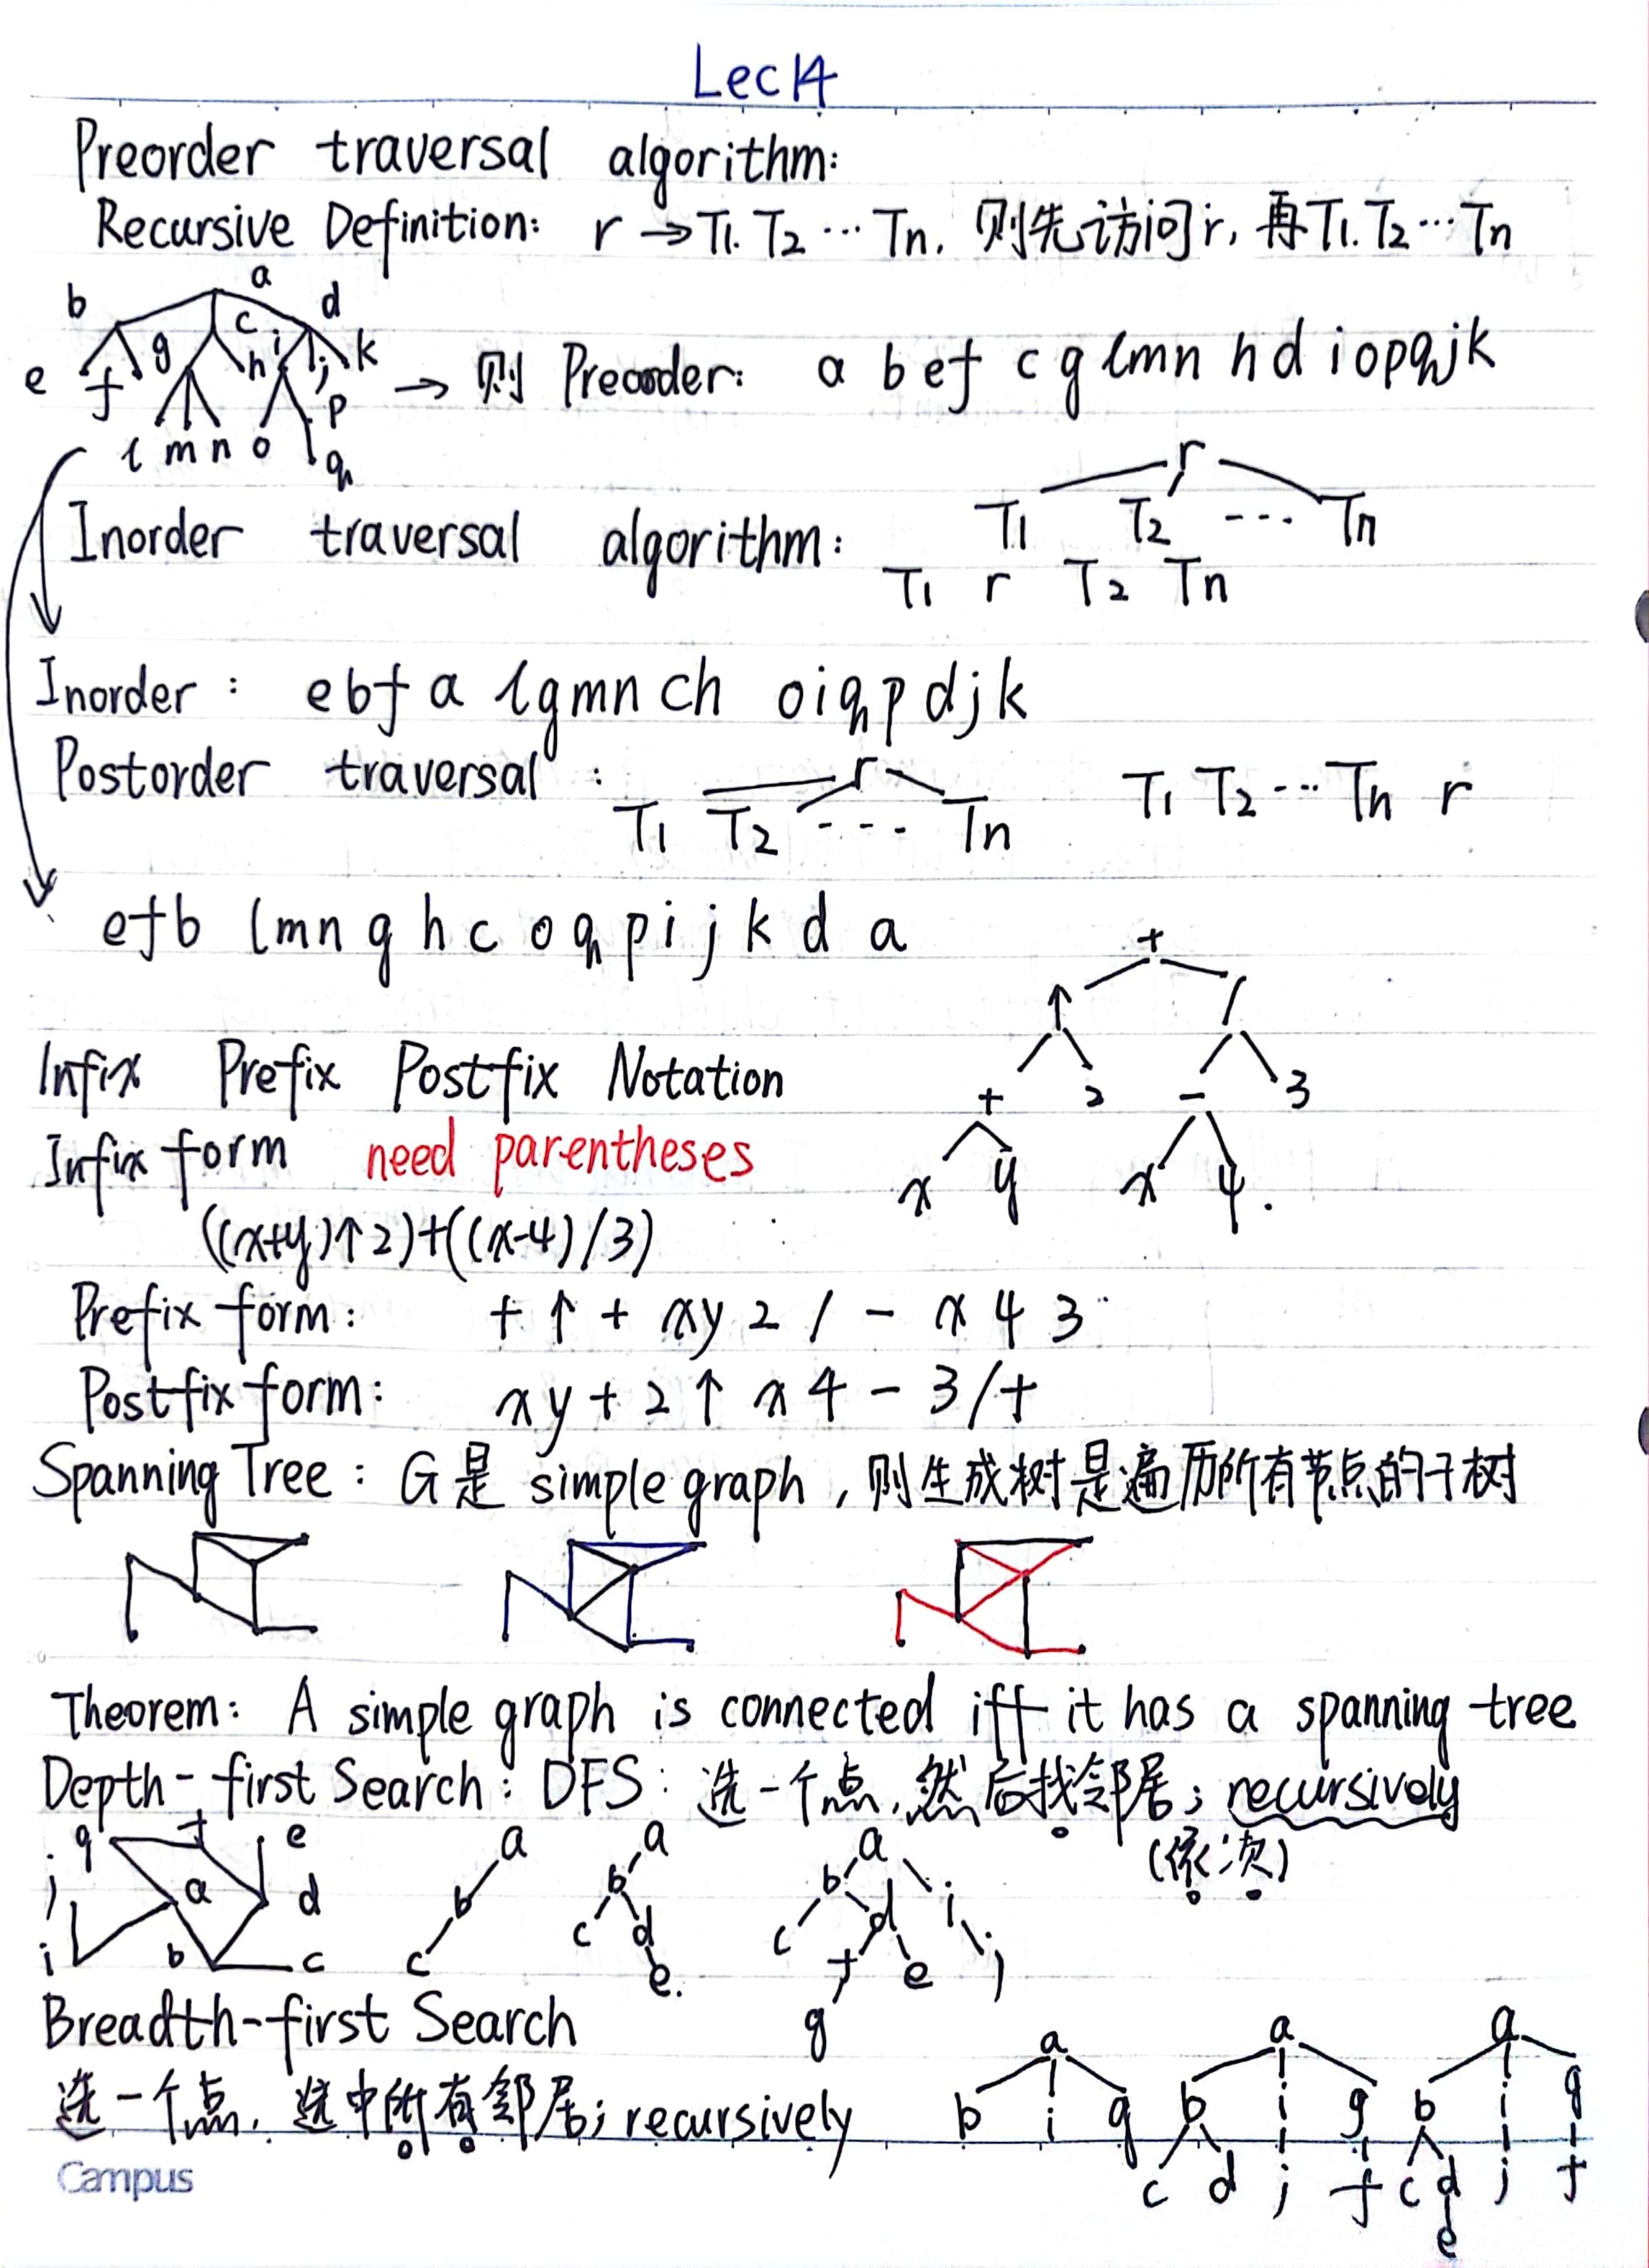 Lec14
Preorder traversal algorithm:
Recursive Definition: r → T1. T2 ⋯ Tn. 则先访问r, 再T1. T2 ⋯ Tn
a
b c d
e f g h i j k
l m n o p
q
→ 则 Preorder: a b e f c g l m n h d i o p q j k
r
T1 T2 --- Tn
Inorder traversal algorithm:
T1 r T2 Tn
Inorder: e b f a l g m n c h o i q p d j k
Postorder traversal:
r
T1 T2 --- Tn
T1 T2 ⋯ Tn r
e f b l m n g h c o q p i j k d a
+
↑ /
+ 2 - 3
x y x 4.
Infix Prefix Postfix Notation
Infix form need parentheses
((x+y)↑2)+((x-4)/3)
Prefix form: + ↑ + x y 2 / - x 4 3
Postfix form: x y + 2 ↑ x 4 - 3 / +
Spanning Tree: G是 simple graph, 则生成树是遍历所有节点的子树
Theorem: A simple graph is connected iff it has a spanning tree
Depth-first Search: DFS: 选一个点,然后找邻居; recursively
(依次)
g f e
j a d
i b c
a
b
c
a
b
c d
e.
a
b i
c d j
f e
g
Breadth-first Search
选一个点, 选中所有邻居; recursively
a
b i g
a
b i g
c d j f
a
b i g
c d j f
e
Campus